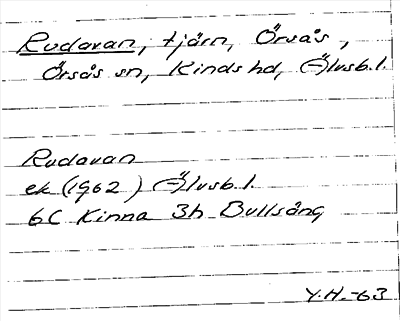 Rudavan, tjärn, Örsås,
Örsås sn, Kinds hd, Älvsb.l.
Rudavan
ek (1962) Älvsb.l.
6C Kinna 3h Bullsäng
Y.H.-63